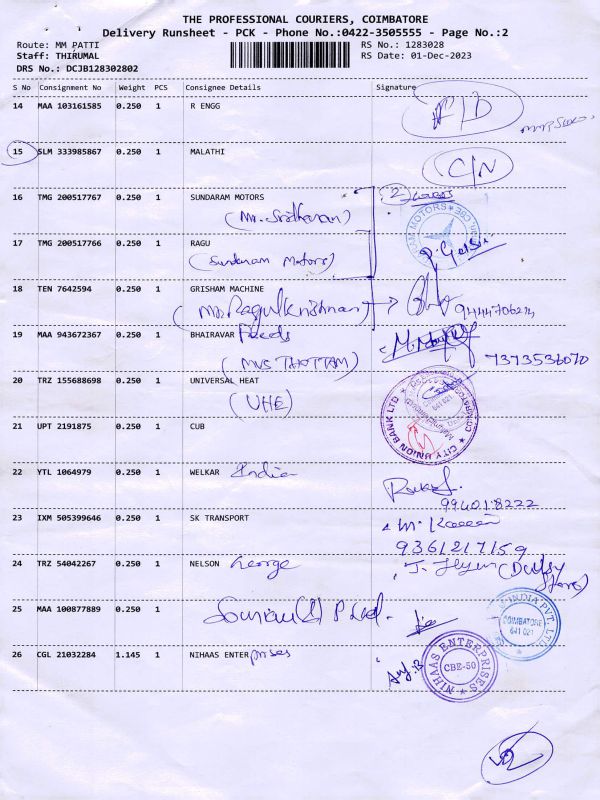 THE PROFESSIONAL COURIERS, COIMBATORE
Delivery Runsheet - PCK - Phone No.:0422-3505555 - Page No.:2
Route: MM PATTI RS No.: 1283028
Staff: THIRUMAL RS Date: 01-Dec-2023
DRS No.: DCJB128302802
S No Consignment No Weight PCS Consignee Details Signature
14 MAA 103161585 0.250 1 R ENGG
15 SLM 333985867 0.250 1 MALATHI C/N
16 TMG 200517767 0.250 1 SUNDARAM MOTORS
17 TMG 200517766 0.250 1 RAGU
(Sundaram Motors)
18 TEN 7642594 0.250 1 GRISHAM MACHINE
19 MAA 943672367 0.250 1 BHAIRAVAR Feeds
(MVS THOTTAM) 7373536070
20 TRZ 155688698 0.250 1 UNIVERSAL HEAT
(UHE)
CITY UNION BANK LTD
641 021
21 UPT 2191875 0.250 1 CUB
22 YTL 1064979 0.250 1 WELKAR India
994018222
23 IXM 505399646 0.250 1 SK TRANSPORT
9361217159
24 TRZ 54042267 0.250 1 NELSON George
25 MAA 100877889 0.250 1
INDIA PVT. LTD.
COIMBATORE
641 021
26 CGL 21032284 1.145 1 NIHAAS ENTERprises
NIHAAS ENTERPRISES
CBE-50